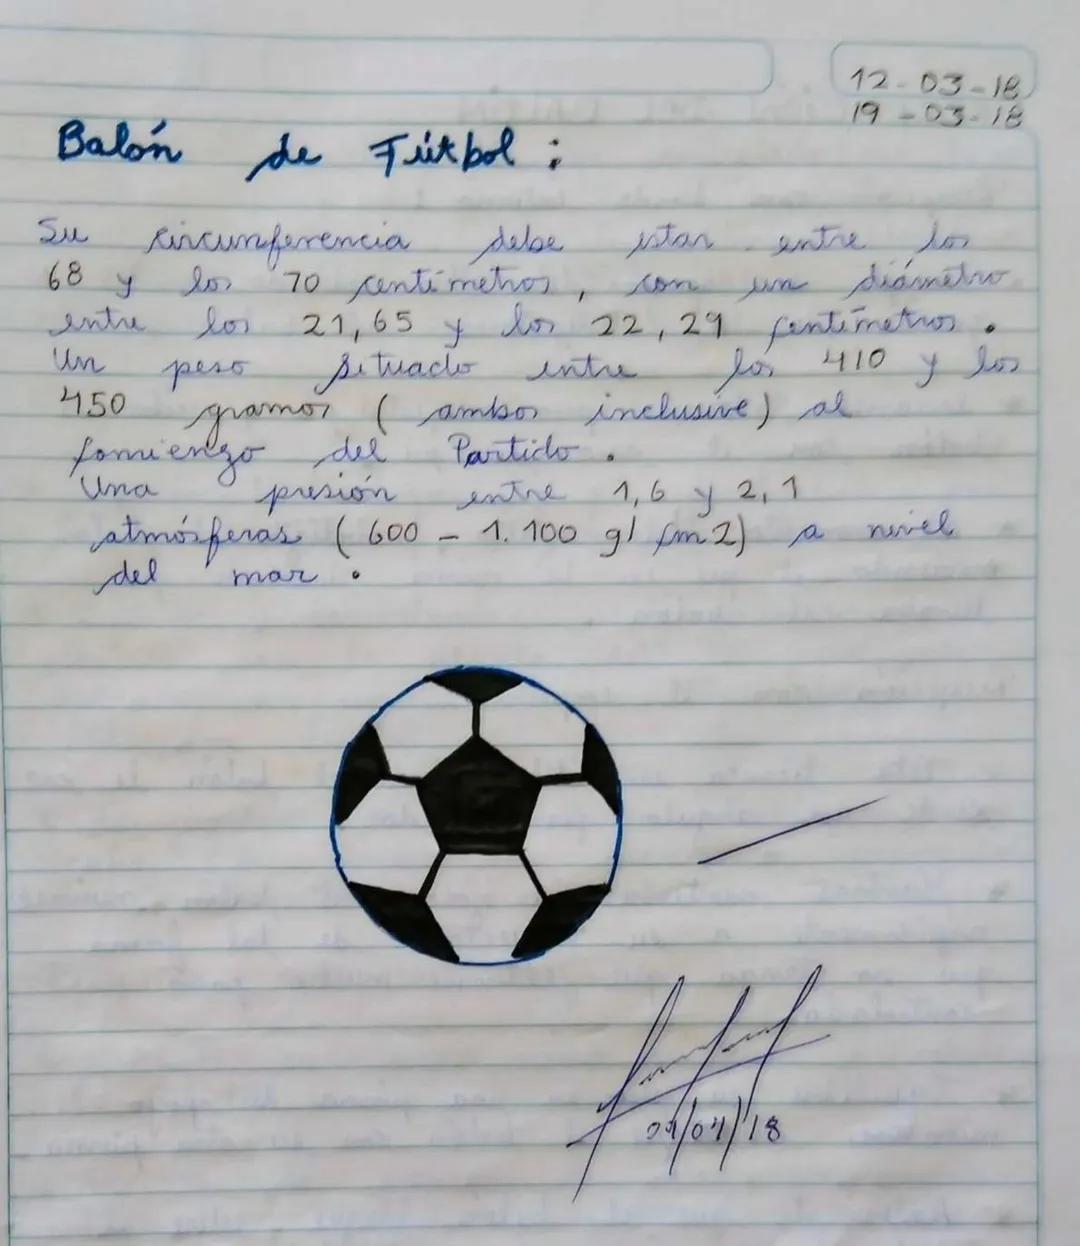 12-03-18
19-03-18
Balón de Fútbol :
Su circunferencia debe estar entre los
68 y los 70 centímetros, con un diámetro
entre los 21,65 y los 22,29 centímetros.
Un peso situado entre los 410 y los
450 gramos (ambos inclusive) al
comienzo del Partido.
Una presión entre 1,6 y 2,1
atmósferas (600 - 1.100 g/cm2) a nivel
del mar.
/04/18